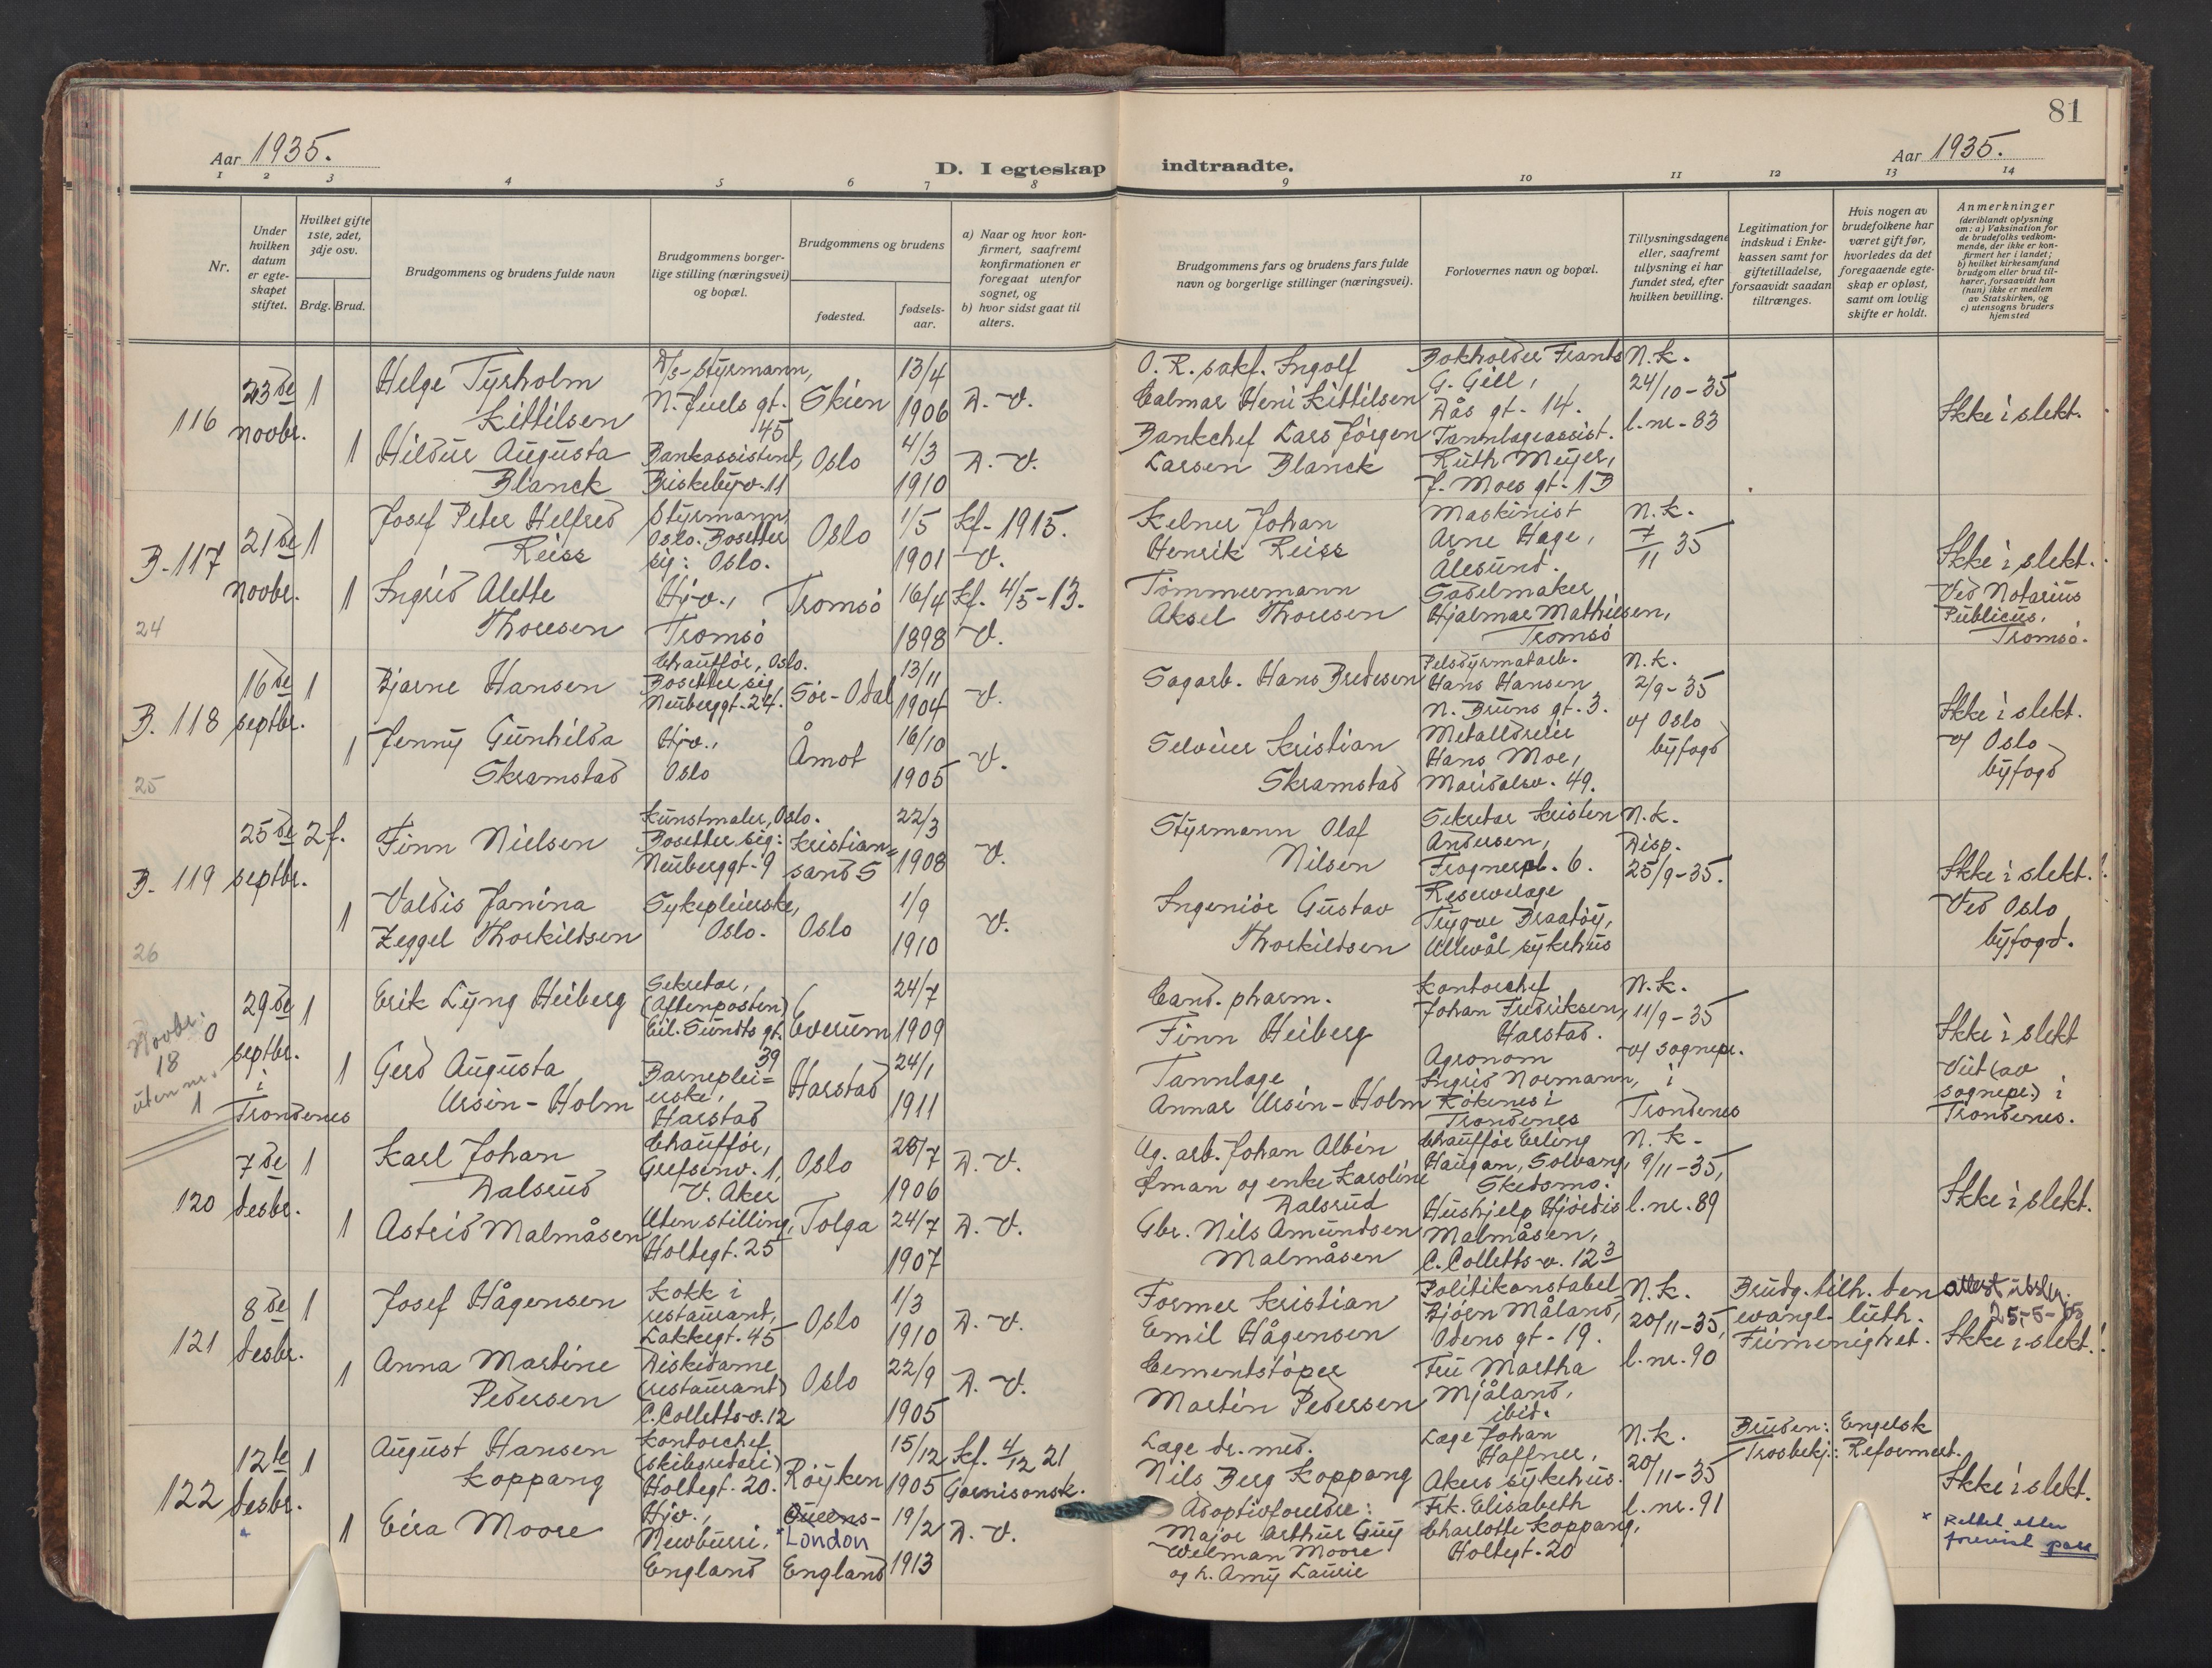 81
Aar 1935.
D. I egteskap indtraadte.
Aar 1935.
1 2 3 4 5 6 7 8 9 10 11 12 13 14
Nr.
Under hvilken datum er egteskapet stiftet.
Hvilket gifte 1ste, 2det, 3dje osv.
Brdg. Brud.
Brudgommens og brudens fulde navn
Brudgommens borgerlige stilling (næringsvei) og bopæl.
Brudgommens og brudens
fødested.
fødselsaar.
a) Naar og hvor konfirmert, saafremt konfirmationen er foregaat utenfor sognet, og
b) hvor sidst gaat til alters.
Brudgommens fars og brudens fars fulde navn og borgerlige stillinger (næringsvei).
Forlovernes navn og bopæl.
Tillysningsdagene eller, saafremt tillysning ei har fundet sted, efter hvilken bevilling.
Legitimation for indskud i Enkekassen samt for giftetilladelse, forsaavidt saadan tiltrænges.
Hvis nogen av brudefolkene har været gift før, hvorledes da det foregaaende egteskap er opløst, samt om lovlig skifte er holdt.
Anmerkninger
(deriblandt oplysning om: a) Vaksination for de brudefolks vedkommende, der ikke er konfirmert her i landet; b) hvilket kirkesamfund brudgom eller brud tilhører, forsaavidt han (hun) ikke er medlem av Statskirken, og c) utensogns bruders hjemsted
116
23de novbr.
1
Helge Tyrholm Kittilsen
D/s-Styrmann, N. Juels gt. 45
Skien
13/4 1906
D. V.
O.R. sakf. Ingolf Calmar Heni Kittilsen
Bokholder Frants G. Gill, Dås gt. 14.
N.k. 24/10-35 l.nr.-83
Ikke i slekt.
1
Hildur Augusta Blanck
Bankassistent, Briskebyv. 11
Oslo
4/3 1910
D. V.
Bankchef Lars Jörgen Larsen Blanck
Tannlægeassist. Ruth Meyer, J. Moes gt. 1B
B. 117
24
21de novbr.
1
Josef Peter Helfred Reiss
Styrmann, Oslo. Bosetter sig: Oslo.
Oslo
1/5 1901
kf. 1915. V.
Kelner Johan Henrik Reiss
Maskinist Arne Hage, Ålesund.
N.k. 7/11 35
Ikke i slekt. Ved Notarius Publicus, Tromsö.
1
Ingrid Alette Thoresen
Hjv., Tromsö
Tromsö
16/4 1898
kf. 4/5-13. V.
Tömmermann Aksel Thoresen
Sadelmaker Hjalmar Mathiesen, Tromsö
B. 118
25
16de septbr.
1
Bjarne Hansen
Chaufför, Oslo. Bosetter sig Neuberggt. 24.
Sör-Odal
13/11 1904
V.
Sagarb. Hans Bredesen
Pelsdyrmatarb. Hans Hansen N. Bruns gt. 3.
N.k. 2/9-35 v/ Oslo byfogd
Ikke i slekt. v/ Oslo byfogd
1
Jenny Gunhilda Skramstad
Hjv., Oslo
Åmot
16/10 1905
V.
Selveier Kristian Skramstad
Metalldreier Hans Moe, Maridalsv. 49.
B. 119
26
25de septbr.
2 f.
Finn Nielsen
Kunstmaler, Oslo. Bosetter sig: Neuberggt. 9
Kristiansand S
22/3 1908
V.
Styrmann Olaf Nilsen
Sekretær Kristen Andersen, Frognerpl. 6.
N.k. Disp. 25/9-35.
Ikke i slekt. Ved Oslo byfogd.
1
Valdis Janina Zeggel Thorkildsen
Sykepleierske, Oslo.
Oslo
1/9 1910
V.
Ingeniör Gustav Thorkildsen
Reservelæge Trygve Braatöy, Ullevål sykehus
Novbr. 18 0
uten nr. 1
29de septbr. i Trondenes
1
Erik Lyng Heiberg
Sekretær, (Aftenposten) Eil. Sundts gt. 39
Everum
24/7 1909
Cand. pharm. Finn Heiberg
Kontorchef Johan Fredriksen, Harstad.
N.k. 11/9-35 v/ sognepr. i Trondenes
Ikke i slekt Viet (av sognepr.) i Trondenes.
1
Gerd Augusta Ursin-Holm
Barnepleierske, Harstad
Harstad
24/1 1911
Tannlæge Annar Ursin-Holm
Agronom Ingrid Normann, Kökenes i Trondenes
120
7de desbr.
1
Karl Johan Dalsrud
Chaufför, Grefsenv. 1, V. Aker
Oslo
25/7 1906
D. V.
Ug. arb. Johan Albin Öman og enke Karoline Dalsrud
Chaufför Erling Haugan, Solvang, Skedsmo.
N.k. 9/11-35, l.nr. 89
Ikke i slekt.
1
Astrid Malmåsen
Uten stilling, Holtegt. 25
Tolga
24/7 1907
D. V.
Gbr. Nils Amundsen Malmåsen
Hushjelp Hjördis Malmåsen, C. Colletts v. 12³
121
8de desbr.
1
Josef Hågensen
Kokk i restaurant, Lakkegt. 45
Oslo
1/3 1910
D. V.
Former Kristian Emil Hågensen
Politikonstabel Bjørn Måland, Odens gt. 19.
N.k. 20/11-35, l.nr. 90
Brudg. tilh. den evangl. luth. Frimenighet.
attest utstr. 25-5-
Ikke i slekt.
1
Anna Martine Pedersen
Diskedame (restaurant) C. Colletts v. 12
Oslo
22/9 1905
D. V.
Cementstöper Martin Pedersen
Fru Martha Mjåland, ibid.
122
12te desbr.
1
August Hansen Koppang
Kontorchef (skibsrederi) Holtegt. 20.
Röyken
15/12 1905
kf. 4/12 21 Garnisonsk.
Læge dr. med. Nils Berg Koppang
Læge Johan Haffner, Akers sykehus.
N.k. 20/11-35 l.nr. 91
Bruden: Engelsk Trosbekj.: Reformert.
Ikke i slekt.
1
Eira Moore
Hjv., Newburri, England
Queens- *London England
19/2 1913
D. V.
Adoptivforeldre: Major Arthur Guy Welman Moore og h. Amy Laurie
Frk. Elisabeth Charlotte Koppang, Holtegt. 20
* Rettet etter forevist pass